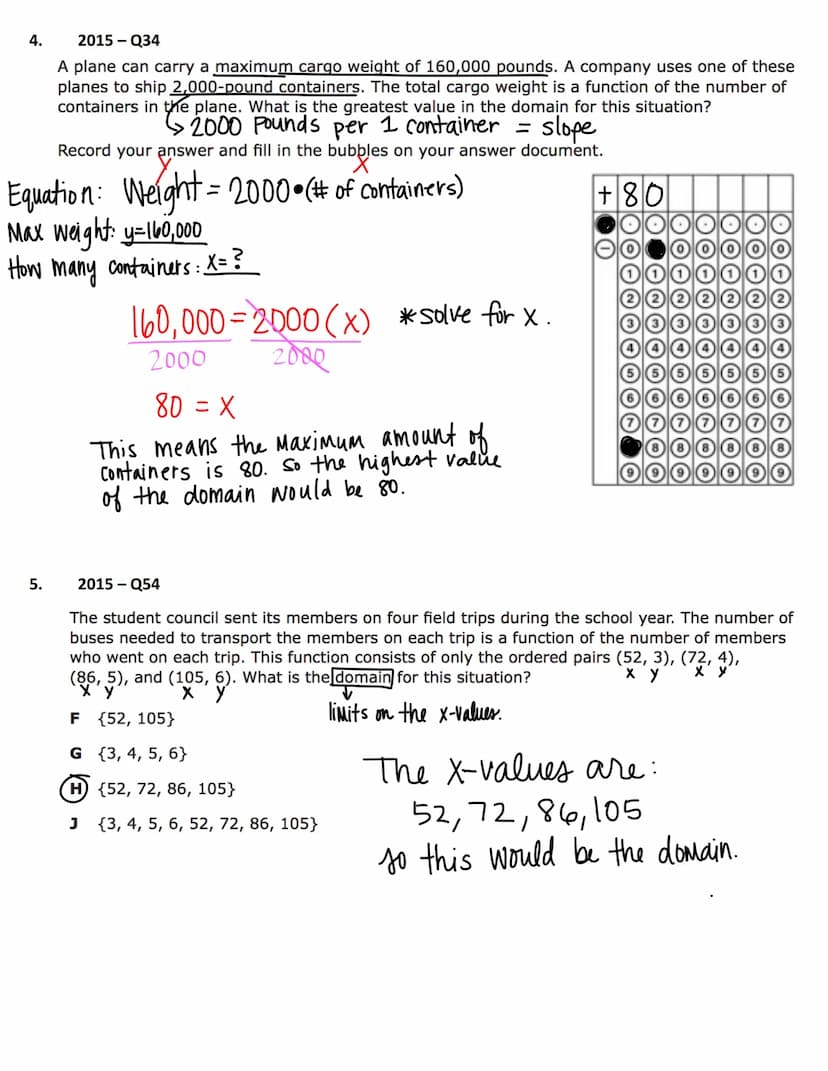 4. 2015 – Q34
A plane can carry a maximum cargo weight of 160,000 pounds. A company uses one of these
planes to ship 2,000-pound containers. The total cargo weight is a function of the number of
containers in the plane. What is the greatest value in the domain for this situation?
↳ 2000 Pounds per 1 container = slope
Record your answer and fill in the bubbles on your answer document.
y x
Equation: Weight = 2000•(# of containers)
Max Weight: y=160,000
How many containers: x=?
160,000 = 2000(x) *solve for x.
2000 2000
80 = x
This means the maximum amount of
containers is 80. So the highest value
of the domain would be 80.
+ 8 0
. . . . . . .
− 0 0 0 0 0 0
1 1 1 1 1 1 1
2 2 2 2 2 2 2
3 3 3 3 3 3 3
4 4 4 4 4 4 4
5 5 5 5 5 5 5
6 6 6 6 6 6 6
7 7 7 7 7 7 7
8 8 8 8 8 8
9 9 9 9 9 9 9
5. 2015 – Q54
The student council sent its members on four field trips during the school year. The number of
buses needed to transport the members on each trip is a function of the number of members
who went on each trip. This function consists of only the ordered pairs (52, 3), (72, 4),
x y x y
(86, 5), and (105, 6). What is the domain for this situation?
x y x y
limits on the x-values.
F {52, 105}
G {3, 4, 5, 6}
H {52, 72, 86, 105}
J {3, 4, 5, 6, 52, 72, 86, 105}
The x-values are:
52, 72, 86, 105
so this would be the domain.